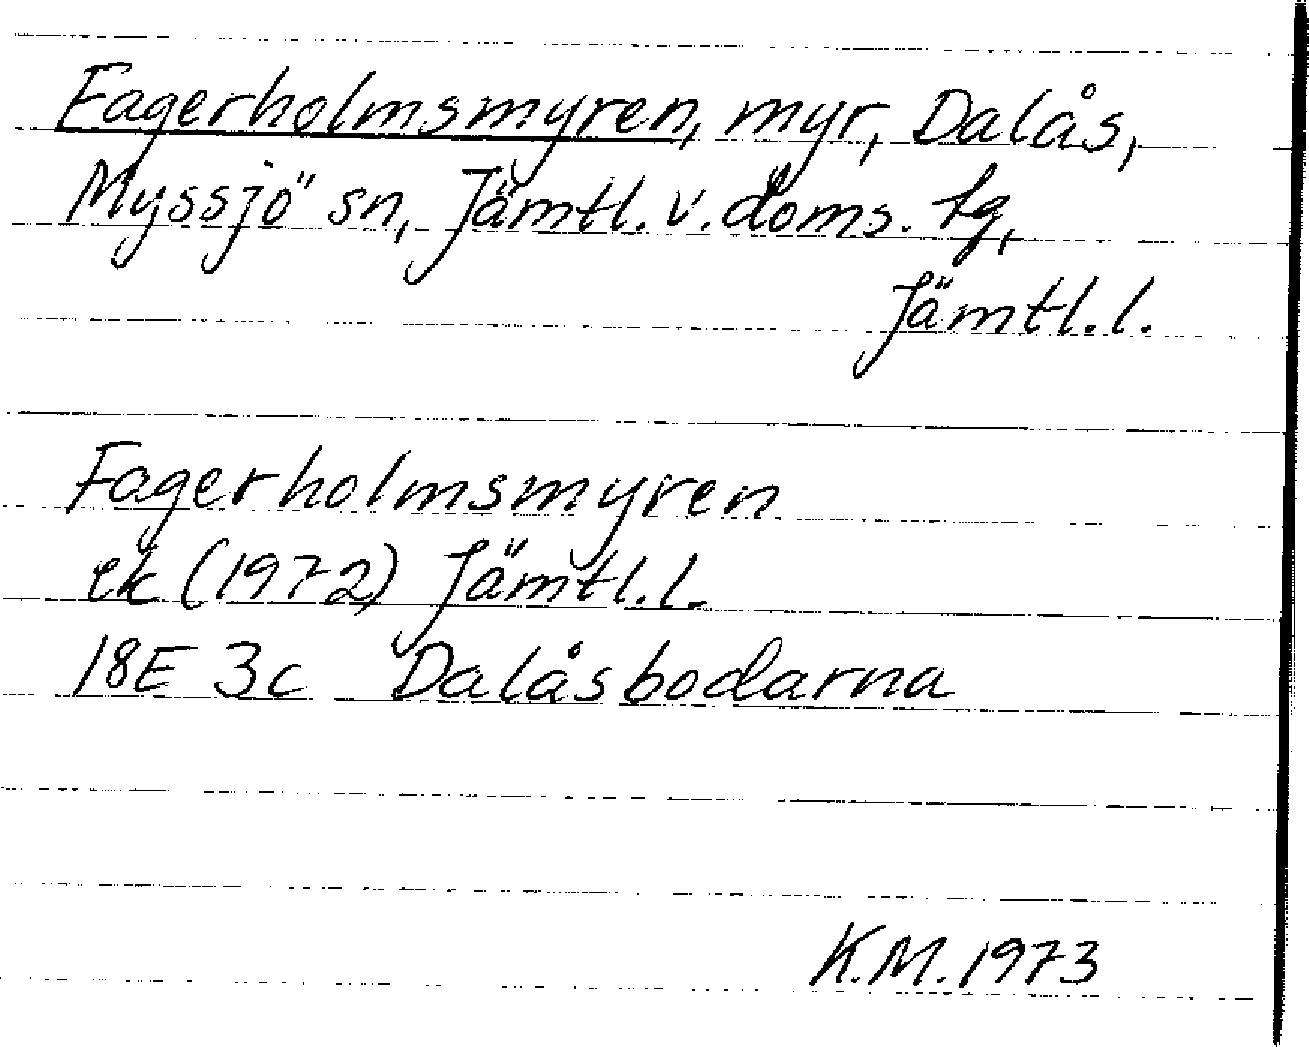 Fagerholmsmyren, myr, Dalås,
Myssjö sn, Jämtl. v. doms. tg,
Jämtl. l.
Fagerholmsmyren
ek (1972) Jämtl. l.
18E 3c Dalåsbodarna
K.M. 1973